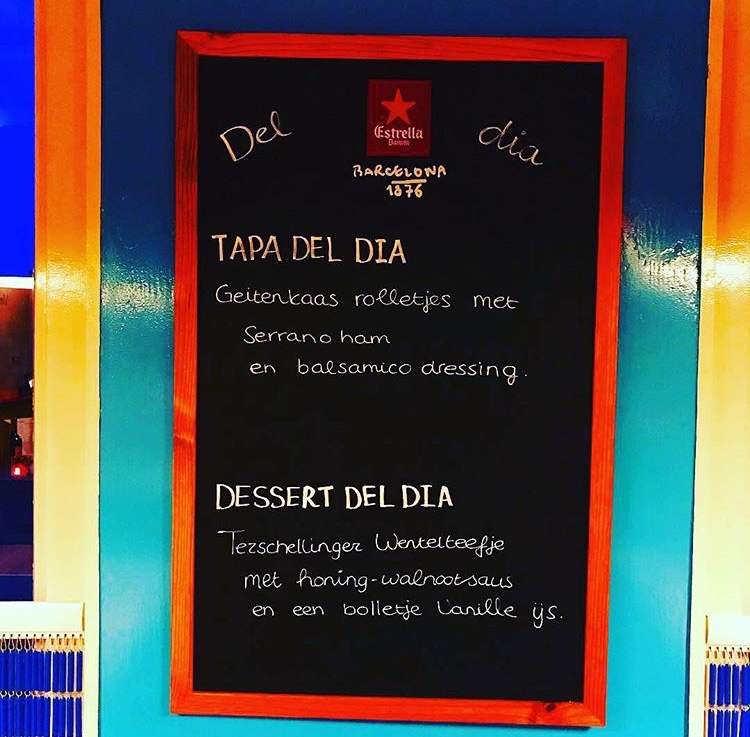 Del dia
Estrella
Damm
BARCELONA
1876
TAPA DEL DIA
Geitenkaas rolletjes met
Serrano ham
en balsamico dressing.
DESSERT DEL DIA
Terschellinger Wentelteefje
met honing-walnootsaus
en een bolletje Vanille ijs.